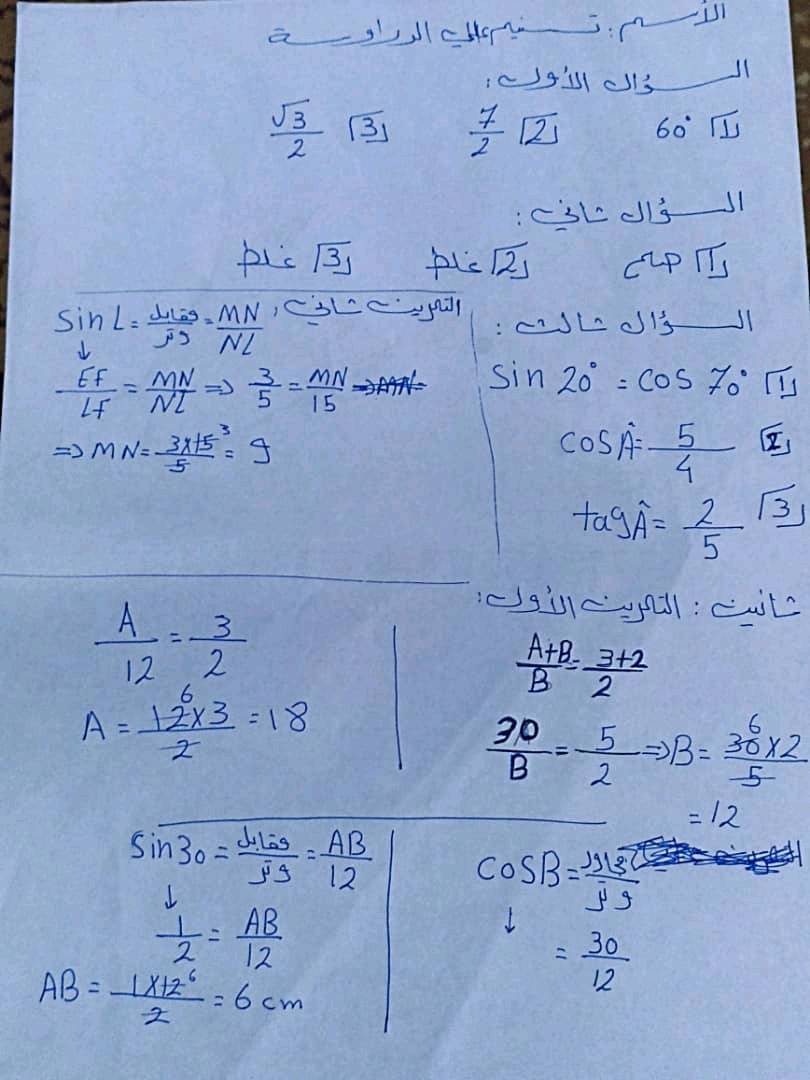 الأسم: تسنيم علي الدراوسة
السؤال الأول:
1 60°
2 7/2
3 √3/2
السؤال ثاني:
1 صح
2 غلط
3 غلط
السؤال ثالث:
1 Sin 20° = cos 70°
2 cos Â = 5/4
3 tag Â = 2/5
التمرين ثاني:
Sin L = مقابل/وتر = MN/NL
↓
EF/LF = MN/NL ⇒ 3/5 = MN/15
⇒ MN = 3×15/5 3 = 9
ثانيت: التمرين الأول:
A+B/B = 3+2/2
30/B = 5/2 ⇒ B = 30×2/5 6
= 12
A/12 = 3/2
A = 12×3/2 6 = 18
cos B = مجاور/وتر
↓
= 30/12
Sin 30 = مقابل/وتر = AB/12
↓
1/2 = AB/12
AB = 1×12/2 6 = 6 cm